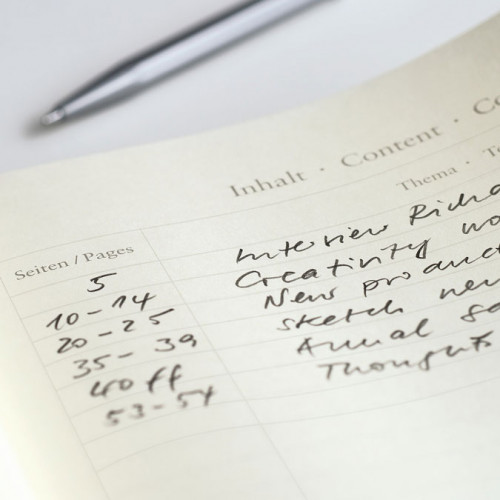 Inhalt · Content ·
Thema ·
Seiten / Pages
5 Interview
10-14 Creativity
20-25 New product
35-39 sketch
40 ff Annual
53-54 Thoughts